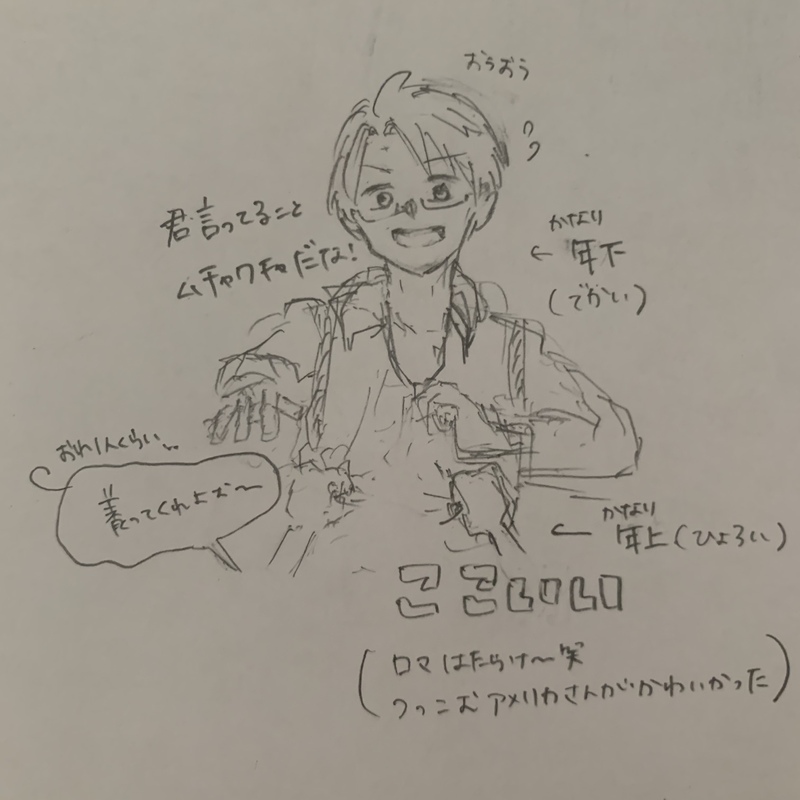 おうおう
君言ってること
ムチャクチャだな!
かなり
← 年下
(でかい)
おれ1人くらい
養ってくれよぉ〜
かなり
← 年上(ひょろい)
(ロマはたらけ〜笑
つっこむアメリカさんがかわいかった)